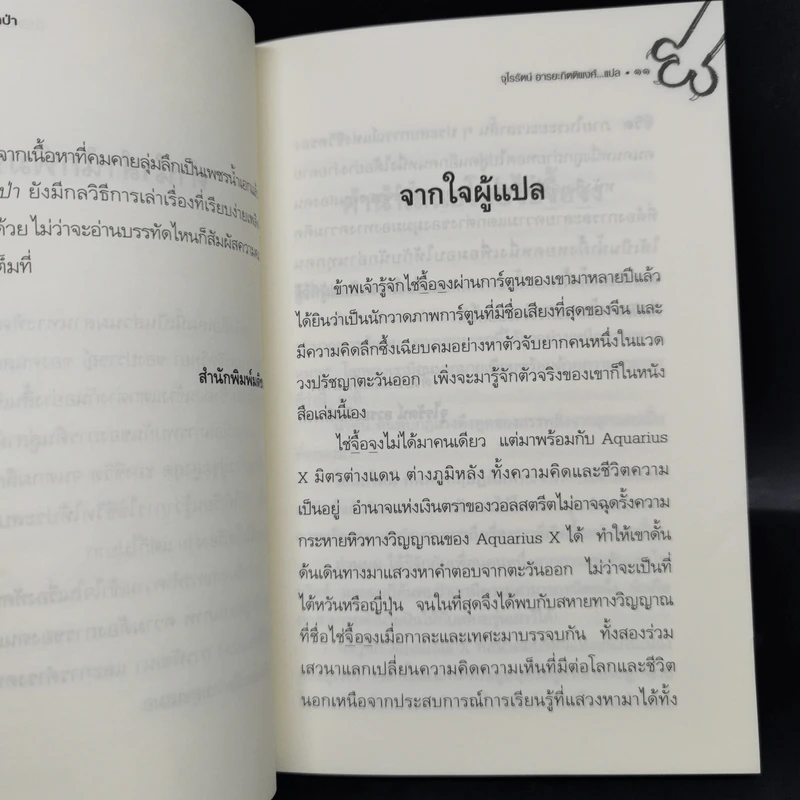 ป่า
จากเนื้อหาที่คมคายลุ่มลึกเป็นเพชรน้ำเอกแล้ว
ป่า ยังมีกลวิธีการเล่าเรื่องที่เรียบง่าย
ด้วย ไม่ว่าจะอ่านบรรทัดไหนก็สัมผัสความ
เต็มที่
สำนักพิมพ์
จุไรรัตน์ อารยะกิตติพงศ์...แปล • ๑๑
จากใจผู้แปล
ข้าพเจ้ารู้จักไช่จื้อจงผ่านการ์ตูนของเขามาหลายปีแล้ว
ได้ยินว่าเป็นนักวาดภาพการ์ตูนที่มีชื่อเสียงที่สุดของจีน และ
มีความคิดลึกซึ้งเฉียบคมอย่างหาตัวจับยากคนหนึ่งในแวด
วงปรัชญาตะวันออก เพิ่งจะมารู้จักตัวจริงของเขาก็ในหนัง
สือเล่มนี้เอง
ไช่จื้อจงไม่ได้มาคนเดียว แต่มาพร้อมกับ Aquarius
X มิตรต่างแดน ต่างภูมิหลัง ทั้งความคิดและชีวิตความ
เป็นอยู่ อำนาจแห่งเงินตราของวอลสตรีตไม่อาจฉุดรั้งความ
กระหายหิวทางวิญญาณของ Aquarius X ได้ ทำให้เขาดั้น
ด้นเดินทางมาแสวงหาคำตอบจากตะวันออก ไม่ว่าจะเป็นที่
ไต้หวันหรือญี่ปุ่น จนในที่สุดจึงได้พบกับสหายทางวิญญาณ
ที่ชื่อไช่จื้อจงเมื่อกาละและเทศะมาบรรจบกัน ทั้งสองร่วม
เสวนาแลกเปลี่ยนความคิดความเห็นที่มีต่อโลกและชีวิต
นอกเหนือจากประสบการณ์การเรียนรู้ที่แสวงหามาได้ทั้ง